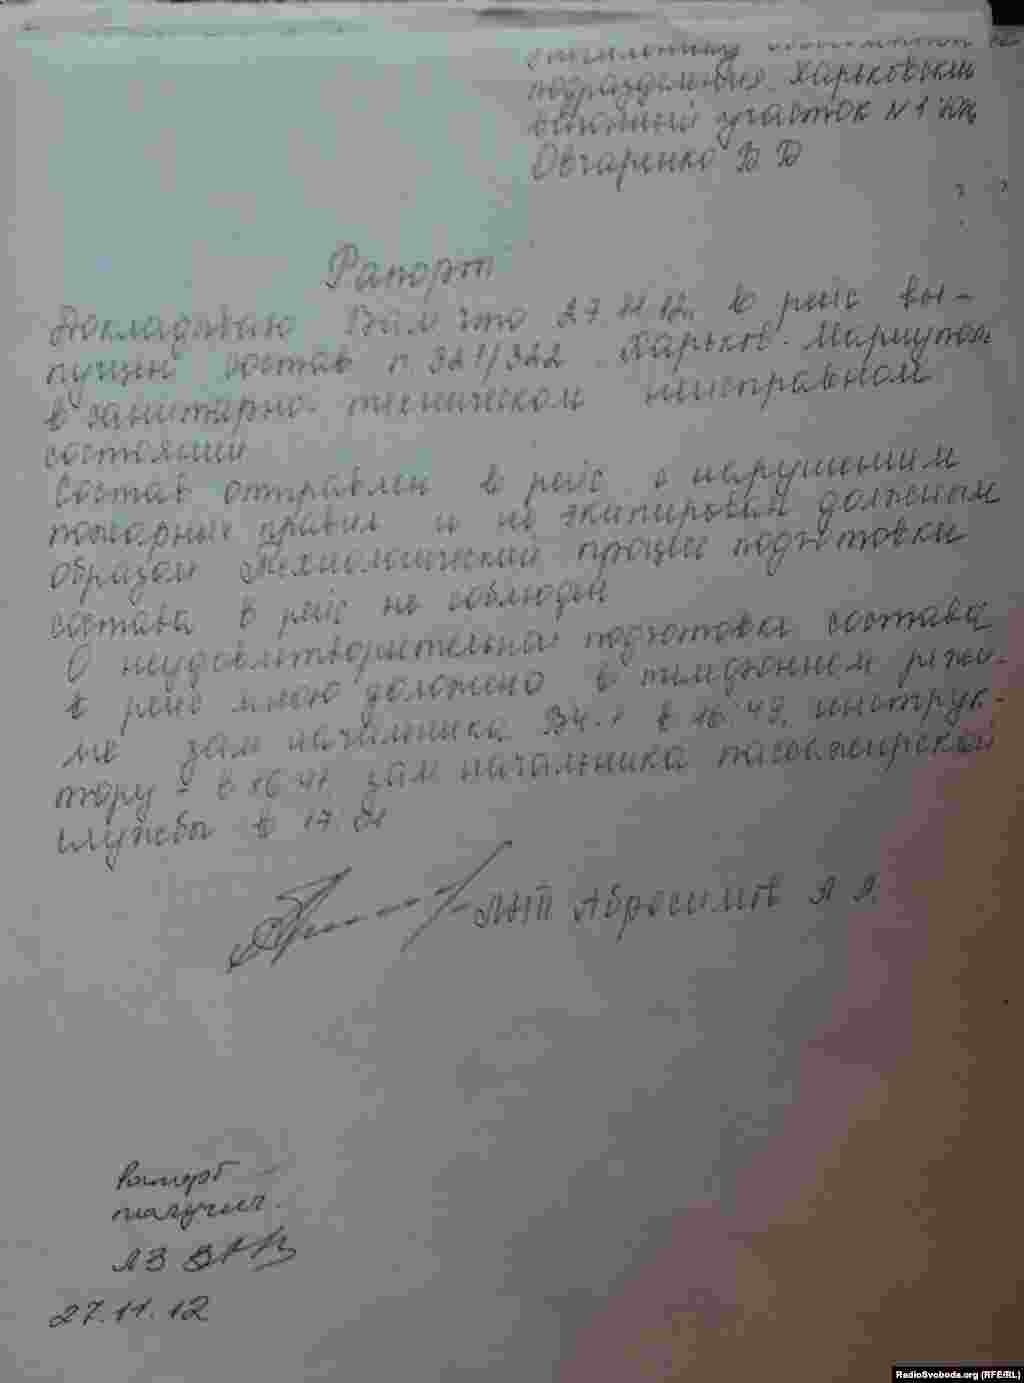 подразделения Харьковский
вагонный участок №1 ЮЖ
Овчаренко В Д
Рапорт
Докладываю Вам что 27 11 12. в рейс вы-
пущен состав п. 321/322 Харьков - Мариуполь
в санитарно-техническом неисправном
состоянии
Состав отправлен в рейс с нарушением
пожарных правил и не экипирован должным
образом Технологический процес подготовки
состава в рейс не соблюден
О неудовлетворительной подготовке состава
в рейс мною доложено в телефонном режи-
ме зам начальника ВЧ-1 в 16 49, инструк-
тору - в 16 41 зам начальника пассажирской
службы в 17 01
ЛНП Абросимов А А.
Рапорт
получил.
27.11.12
RadioSvoboda.org (RFE/RL)